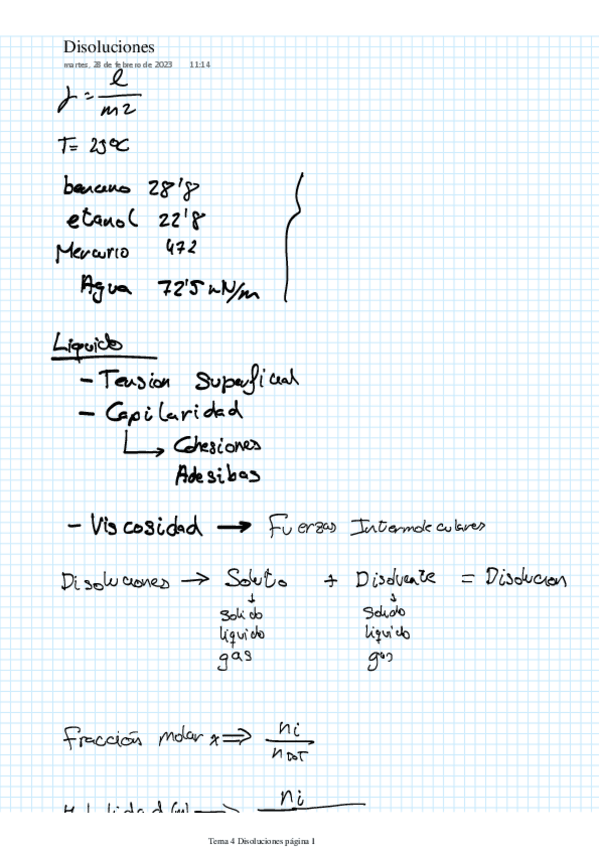 Disoluciones
martes, 28 de febrero de 2023 11:14
γ = l / m2
T= 25ºC
benceno 28'8
etanol 22'8
Mercurio 472
Agua 72'5 mN/m
Liquido
- Tension Superficial
- Capilaridad
Cohesiones
Adesibas
- Viscosidad → Fuerzas Intermoleculares
Disoluciones → Soluto + Disolvente = Disolucion
↓ ↓
Solido Solido
liquido liquido
gas gas
Fracción molar x ⇒ ni / nTOT
ni
Tema 4 Disoluciones página 1